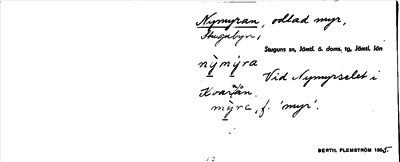 Nymyran, odlad myr,
Stugubyn,
Stuguns sn, Jämtl. ö. doms, tg, Jämtl. län
nỳmýra
Vid Nymyrselet i
Kvarnån.
mỳra, f. 'myr'.
BERTIL FLEMSTRÖM 1965.